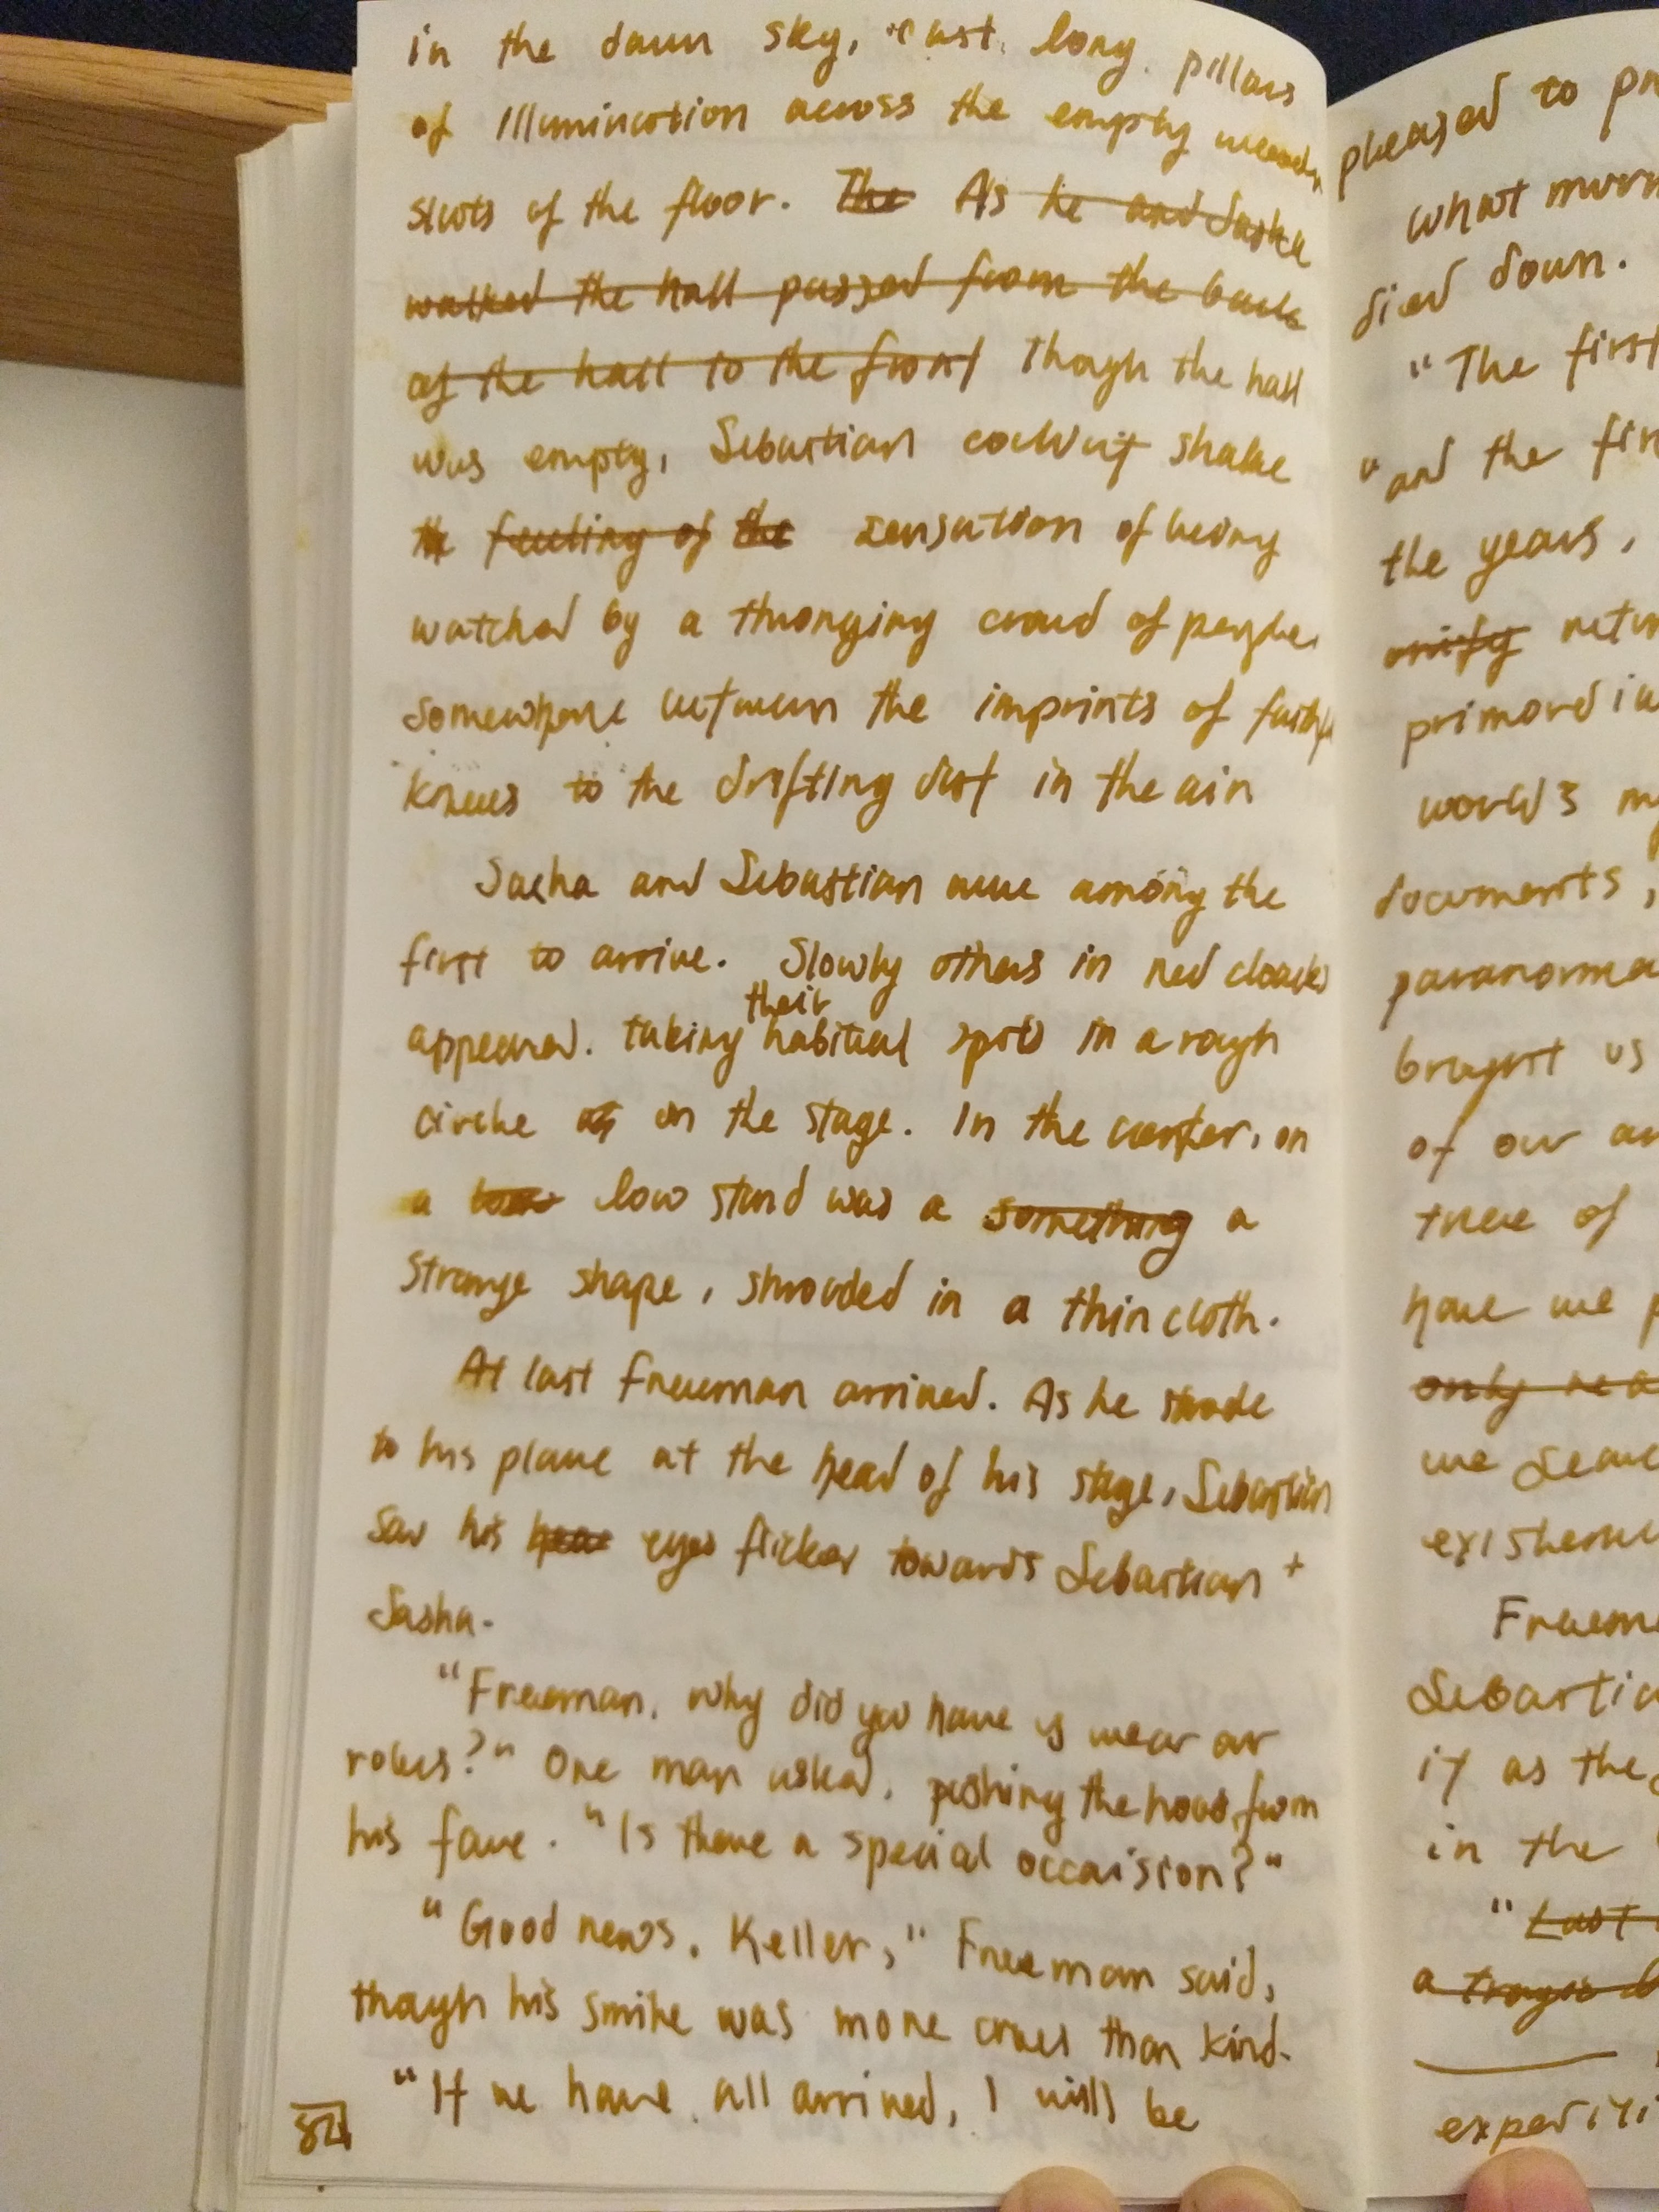 in the dawn sky, cast long pillars
of illumination across the empty wooden
slats of the floor. The As he and Sasha
walked the hall passed from the back
of the hall to the front Though the hall
was empty, Sebastian couldn't shake
the feeling of the sensation of being
watched by a thronging crowd of people
somewhere between the imprints of faithful
knees to the drifting dust in the air
Sasha and Sebastian were among the
first to arrive. Slowly others in red cloaks
their
appeared. taking habitual spots in a rough
circle on the stage. In the center, on
a low stand was a something a
strange shape, shrouded in a thin cloth.
At last Freeman arrived. As he strode
to his place at the head of his stage, Sebastian
saw his eyes flicker towards Sebastian +
Sasha.
"Freeman, why did you have us wear our
robes?" One man asked, pushing the hood from
his face. "Is there a special occaision?"
"Good news, Keller," Freeman said,
though his smile was more cruel than kind.
"If we have all arrived, I will be
84
pleased to
what
died down.
"The first
"and the
the years,
unify
documents,
brought us
of our
tree of
have we
only
we
it as the
in the
"Last
a